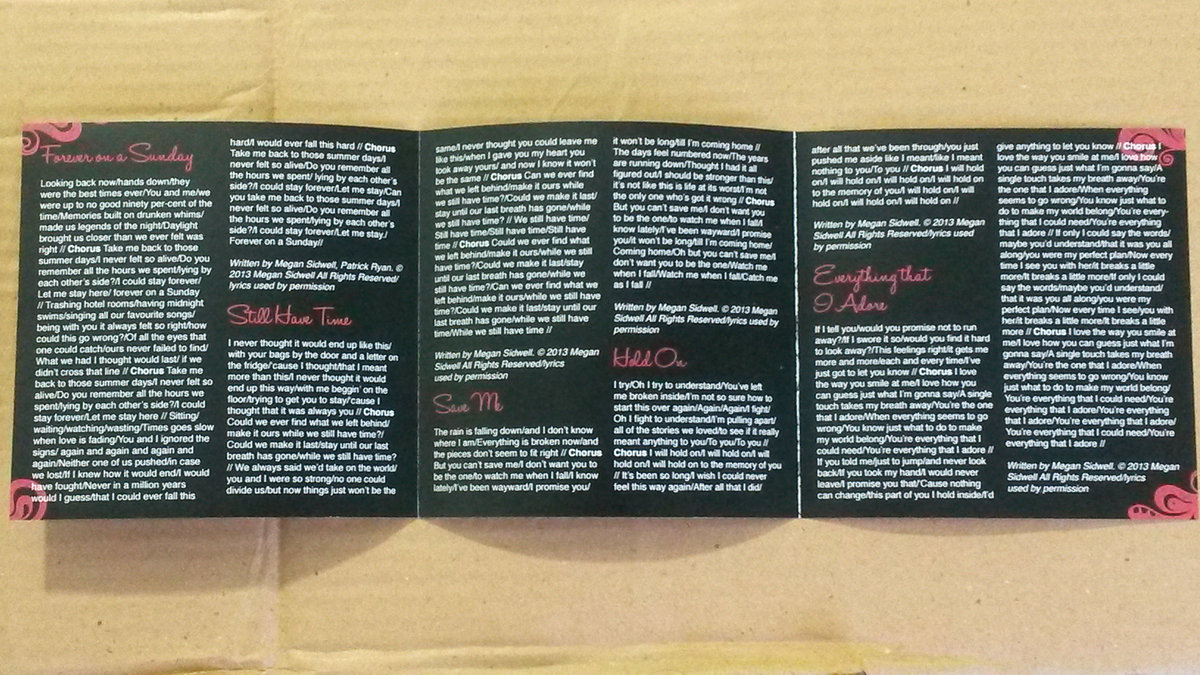 Forever on a Sunday
Looking back now/hands down/they
were the best times ever/You and me/we
were up to no good ninety per-cent of the
time/Memories built on drunken whims/
made us legends of the night/Daylight
brought us closer than we ever felt was
right // Chorus Take me back to those
summer days/I never felt so alive/Do you
remember all the hours we spent/lying by
each other's side?/I could stay forever/
Let me stay here/ forever on a Sunday
// Trashing hotel rooms/having midnight
swims/singing all our favourite songs/
being with you it always felt so right/how
could this go wrong?/Of all the eyes that
one could catch/ours never failed to find/
What we had I thought would last/ if we
didn't cross that line // Chorus Take me
back to those summer days/I never felt so
alive/Do you remember all the hours we
spent/lying by each other's side?/I could
stay forever/Let me stay here // Sitting/
waiting/watching/wasting/Times goes slow
when love is fading/You and I ignored the
signs/ again and again and again and
again/Neither one of us pushed/in case
we lost/If I knew how it would end/I would
have fought/Never in a million years
would I guess/that I could ever fall this
hard/I would ever fall this hard // Chorus
Take me back to those summer days/I
never felt so alive/Do you remember all
the hours we spent/ lying by each other's
side?/I could stay forever/Let me stay/Can
you take me back to those summer days/I
never felt so alive/Do you remember all
the hours we spent/lying by each other's
side?/I could stay forever/Let me stay./
Forever on a Sunday//
Written by Megan Sidwell, Patrick Ryan. ©
2013 Megan Sidwell All Rights Reserved/
lyrics used by permission
Still Have Time
I never thought it would end up like this/
with your bags by the door and a letter on
the fridge/'cause I thought/that I meant
more than this/I never thought it would
end up this way/with me beggin' on the
floor/trying to get you to stay/'cause I
thought that it was always you // Chorus
Could we ever find what we left behind/
make it ours while we still have time?/
Could we make it last/stay until our last
breath has gone/while we still have time?
// We always said we'd take on the world/
you and I were so strong/no one could
divide us/but now things just won't be the
same/I never thought you could leave me
like this/when I gave you my heart you
took away yours/ and now I know it won't
be the same // Chorus Can we ever find
what we left behind/make it ours while
we still have time?/Could we make it last/
stay until our last breath has gone/while
we still have time? // We still have time/
Still have time/Still have time/Still have
time // Chorus Could we ever find what
we left behind/make it ours/while we still
have time?/Could we make it last/stay
until our last breath has gone/while we
still have time?/Can we ever find what we
left behind/make it ours/while we still have
time?/Could we make it last/stay until our
last breath has gone/while we still have
time/While we still have time //
Written by Megan Sidwell. © 2013 Megan
Sidwell All Rights Reserved/lyrics
used by permission
Save Me
The rain is falling down/and I don't know
where I am/Everything is broken now/and
the pieces don't seem to fit right // Chorus
But you can't save me/I don't want you to
be the one/to watch me when I fall/I know
lately/I've been wayward/I promise you/
it won't be long/till I'm coming home //
The days feel numbered now/The years
are running down/Thought I had it all
figured out/I should be stronger than this/
it's not like this is life at its worst/I'm not
the only one who's got it wrong // Chorus
But you can't save me/I don't want you
to be the one/to watch me when I fall/I
know lately/I've been wayward/I promise
you/it won't be long/till I'm coming home/
Coming home/Oh but you can't save me/I
don't want you to be the one/Watch me
when I fall/Watch me when I fall/Catch me
as I fall //
Written by Megan Sidwell. © 2013 Megan
Sidwell All Rights Reserved/lyrics used by
permission
Hold On
I try/Oh I try to understand/You've left
me broken inside/I'm not so sure how to
start this over again/Again/Again/I fight/
Oh I fight to understand/I'm pulling apart/
all of the stories we loved/to see if it really
meant anything to you/To you/To you //
Chorus I will hold on/I will hold on/I will
hold on/I will hold on to the memory of you
// It's been so long/I wish I could never
feel this way again/After all that I did/
after all that we've been through/you just
pushed me aside like I meant/like I meant
nothing to you/To you // Chorus I will hold
on/I will hold on/I will hold on/I will hold on
to the memory of you/I will hold on/I will
hold on/I will hold on/I will hold on //
Written by Megan Sidwell. © 2013 Megan
Sidwell All Rights Reserved/lyrics used
by permission
Everything that
I Adore
If I tell you/would you promise not to run
away?/If I swore it so/would you find it hard
to look away?/This feelings right/it gets me
more and more/each and every time/I've
just got to let you know // Chorus I love
the way you smile at me/I love how you
can guess just what I'm gonna say/A single
touch takes my breath away/You're the one
that I adore/When everything seems to go
wrong/You know just what to do to make
my world belong/You're everything that I
could need/You're everything that I adore //
If you told me/just to jump/and never look
back/If you took my hand/I would never
leave/I promise you that/'Cause nothing
can change/this part of you I hold inside/I'd
give anything to let you know // Chorus I
love the way you smile at me/I love how
you can guess just what I'm gonna say/A
single touch takes my breath away/You're
the one that I adore/When everything
seems to go wrong/You know just what to
do to make my world belong/You're every-
thing that I could need/You're everything
that I adore // If only I could say the words/
maybe you'd understand/that it was you all
along/you were my perfect plan/Now every
time I see you with her/it breaks a little
more/It breaks a little more/If only I could
say the words/maybe you'd understand/
that it was you all along/you were my
perfect plan/Now every time I see/you with
her/it breaks a little more/It breaks a little
more // Chorus I love the way you smile at
me/I love how you can guess just what I'm
gonna say/A single touch takes my breath
away/You're the one that I adore/When
everything seems to go wrong/You know
just what to do to make my world belong/
You're everything that I could need/You're
everything that I adore/You're everything
that I adore/You're everything that I adore/
You're everything that I could need/You're
everything that I adore //
Written by Megan Sidwell. © 2013 Megan
Sidwell All Rights Reserved/lyrics
used by permission